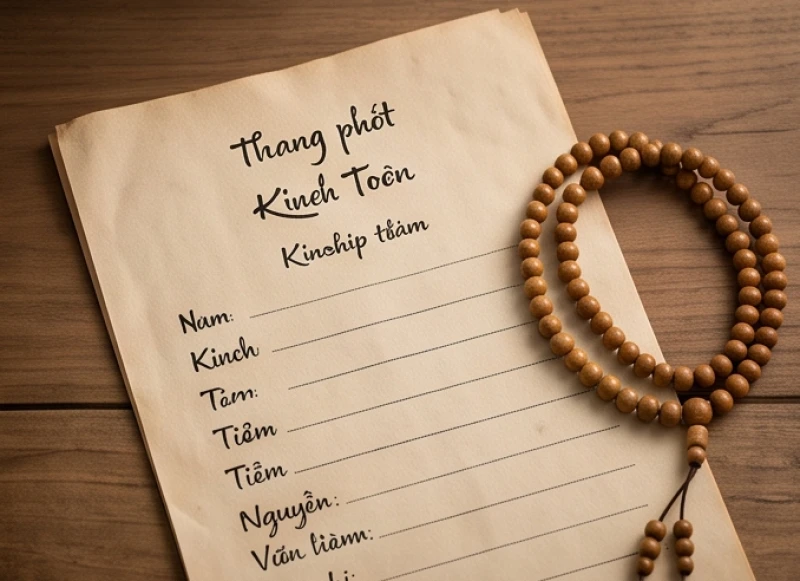 Thang phót
Kineh Toên
Kinohip tẩàm
Nam:
Kinch
Tam:
Tiổm
Tiễm
Nguyễn:
Vuổn liàm: